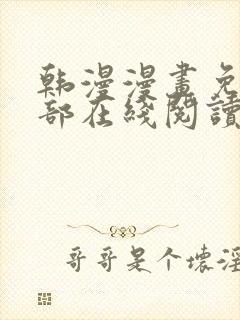 韩漫漫畫免
部在綫閱讀
哥哥是个壞淫